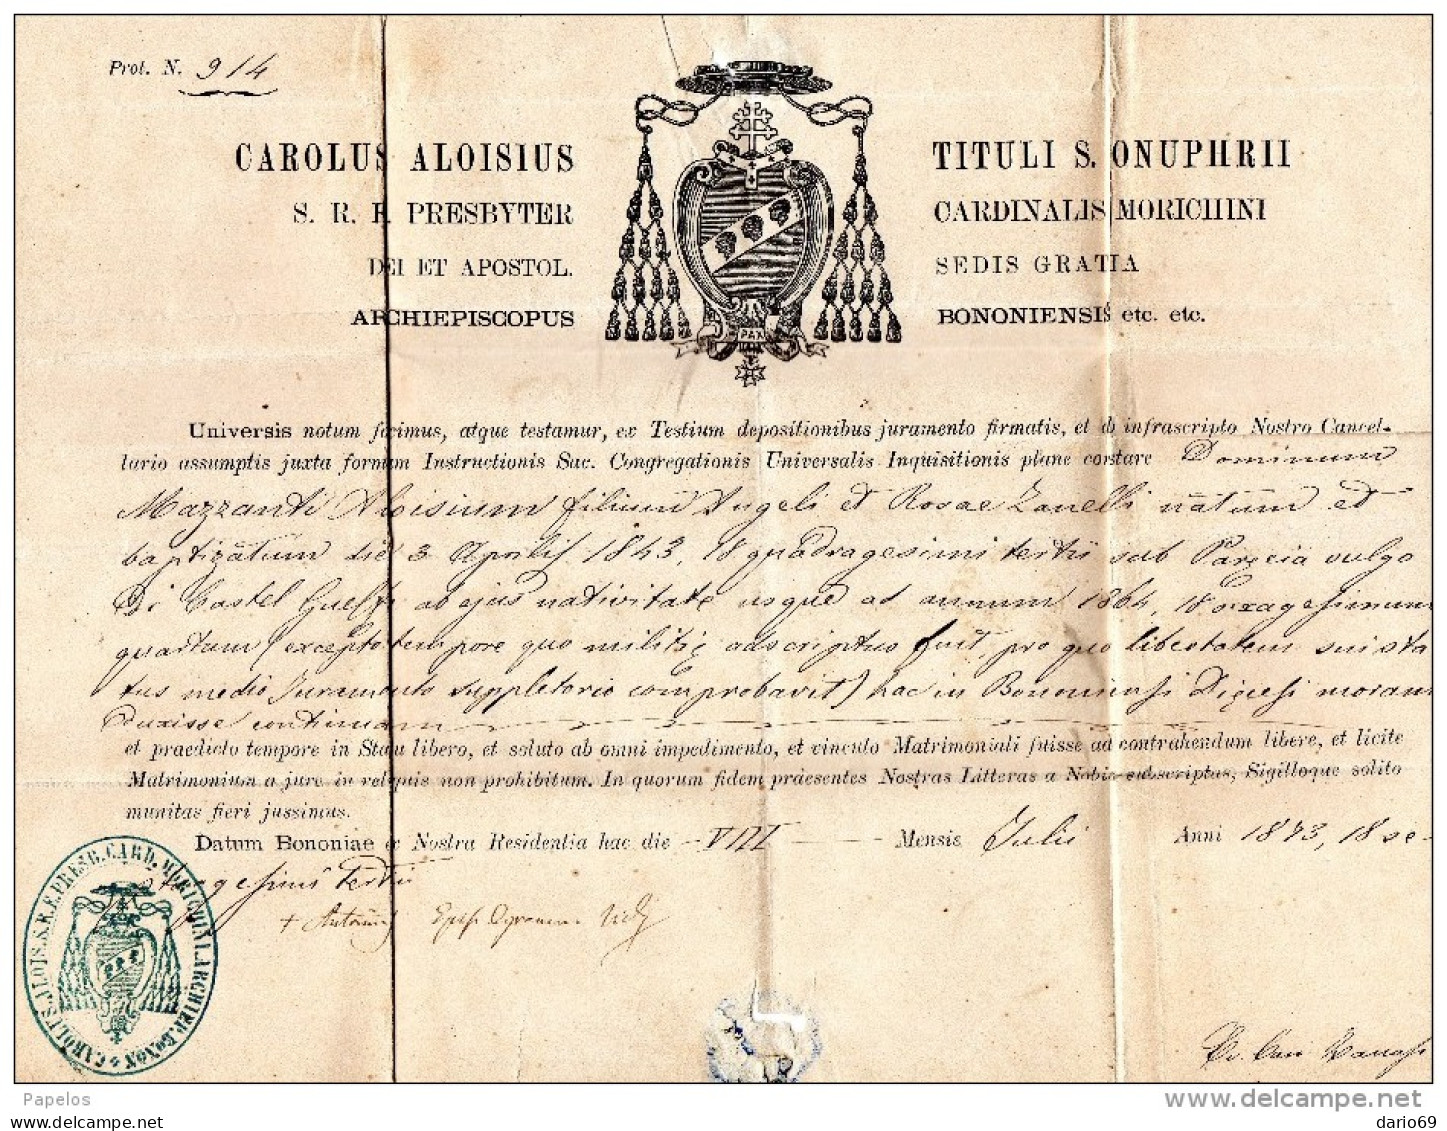 Prot. N. 914
CAROLUS ALOISIUS
TITULI S. ONUPHRII
S. R. E. PRESBYTER
CARDINALIS MORICHINI
DEI ET APOSTOL.
SEDIS GRATIA
ARCHIEPISCOPUS
BONONIENSIS etc. etc.
PAX
Universis notum facimus, atque testamur, ex Testium depositionibus juramento firmatis, et ab infrascripto Nostro Cancel-
lario assumptis juxta formam Instructionis Sac. Congregationis Universalis Inquisitionis plane constare Dominum
Mazzanti Aloisium filium Angeli et Rosae Zanelli natum et
baptizatum die 3 Aprilis 1843, 18 quadragesimi tertii sub Parecia vulgo
Di Castel Guelfo ab ejus nativitate usque ad annum 1864, 18 sexagesimum
quartum (excepto tempore quo militię adscriptus fuit, pro quo libertatem sui sta
tus medio Juramento suppletorio comprobavit) hac in Bononiensi Dięcesi moram
duxisse continuam
et praedicto tempore in Statu libero, et soluto ab omni impedimento, et vinculo Matrimoniali fuisse ad contrahendum libere, et licite
Matrimonium a jure in reliquis non prohibitum. In quorum fidem praesentes Nostras Litteras a Nobis subscriptas, Sigilloque solito
munitas fieri jussimus.
Datum Bononiae ex Nostra Residentia hac die VIII Mensis Julii Anni 1873, 18 se-
ptuagesimi tertii
+ Antonius Epüs
CAROLUS ALOIS. S. R. E. PRESB. CARD. MORICHINI ARCHIEP. BONON
Papelos
www.delcampe.net
dario69